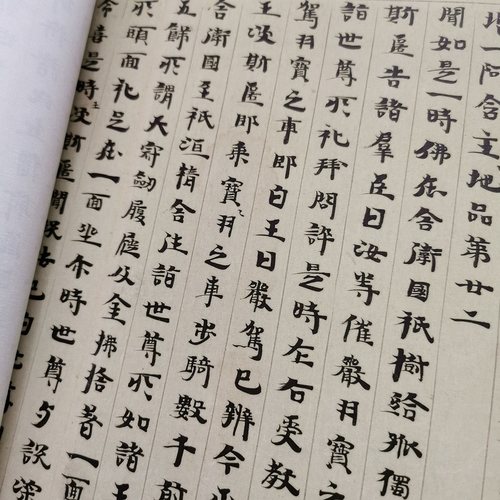 一阿含主地品第廿二
聞如是一時佛在舍衛國祇樹給孤獨
斯匿告諸羣臣曰汝等催嚴羽寶之
詣世尊所礼拜問訊是時左右受教
駕羽寶之車即白王曰嚴駕已辨今正
王波斯匿即乘寶羽之車步騎數千
舍衛國至祇洹精舍往詣世尊所如諸王
五飾所謂天冠劒履屣及金拂捨著一面
所頭面礼足在一面坐尒時世尊与說深
喜是時王波斯匿聞說法已白